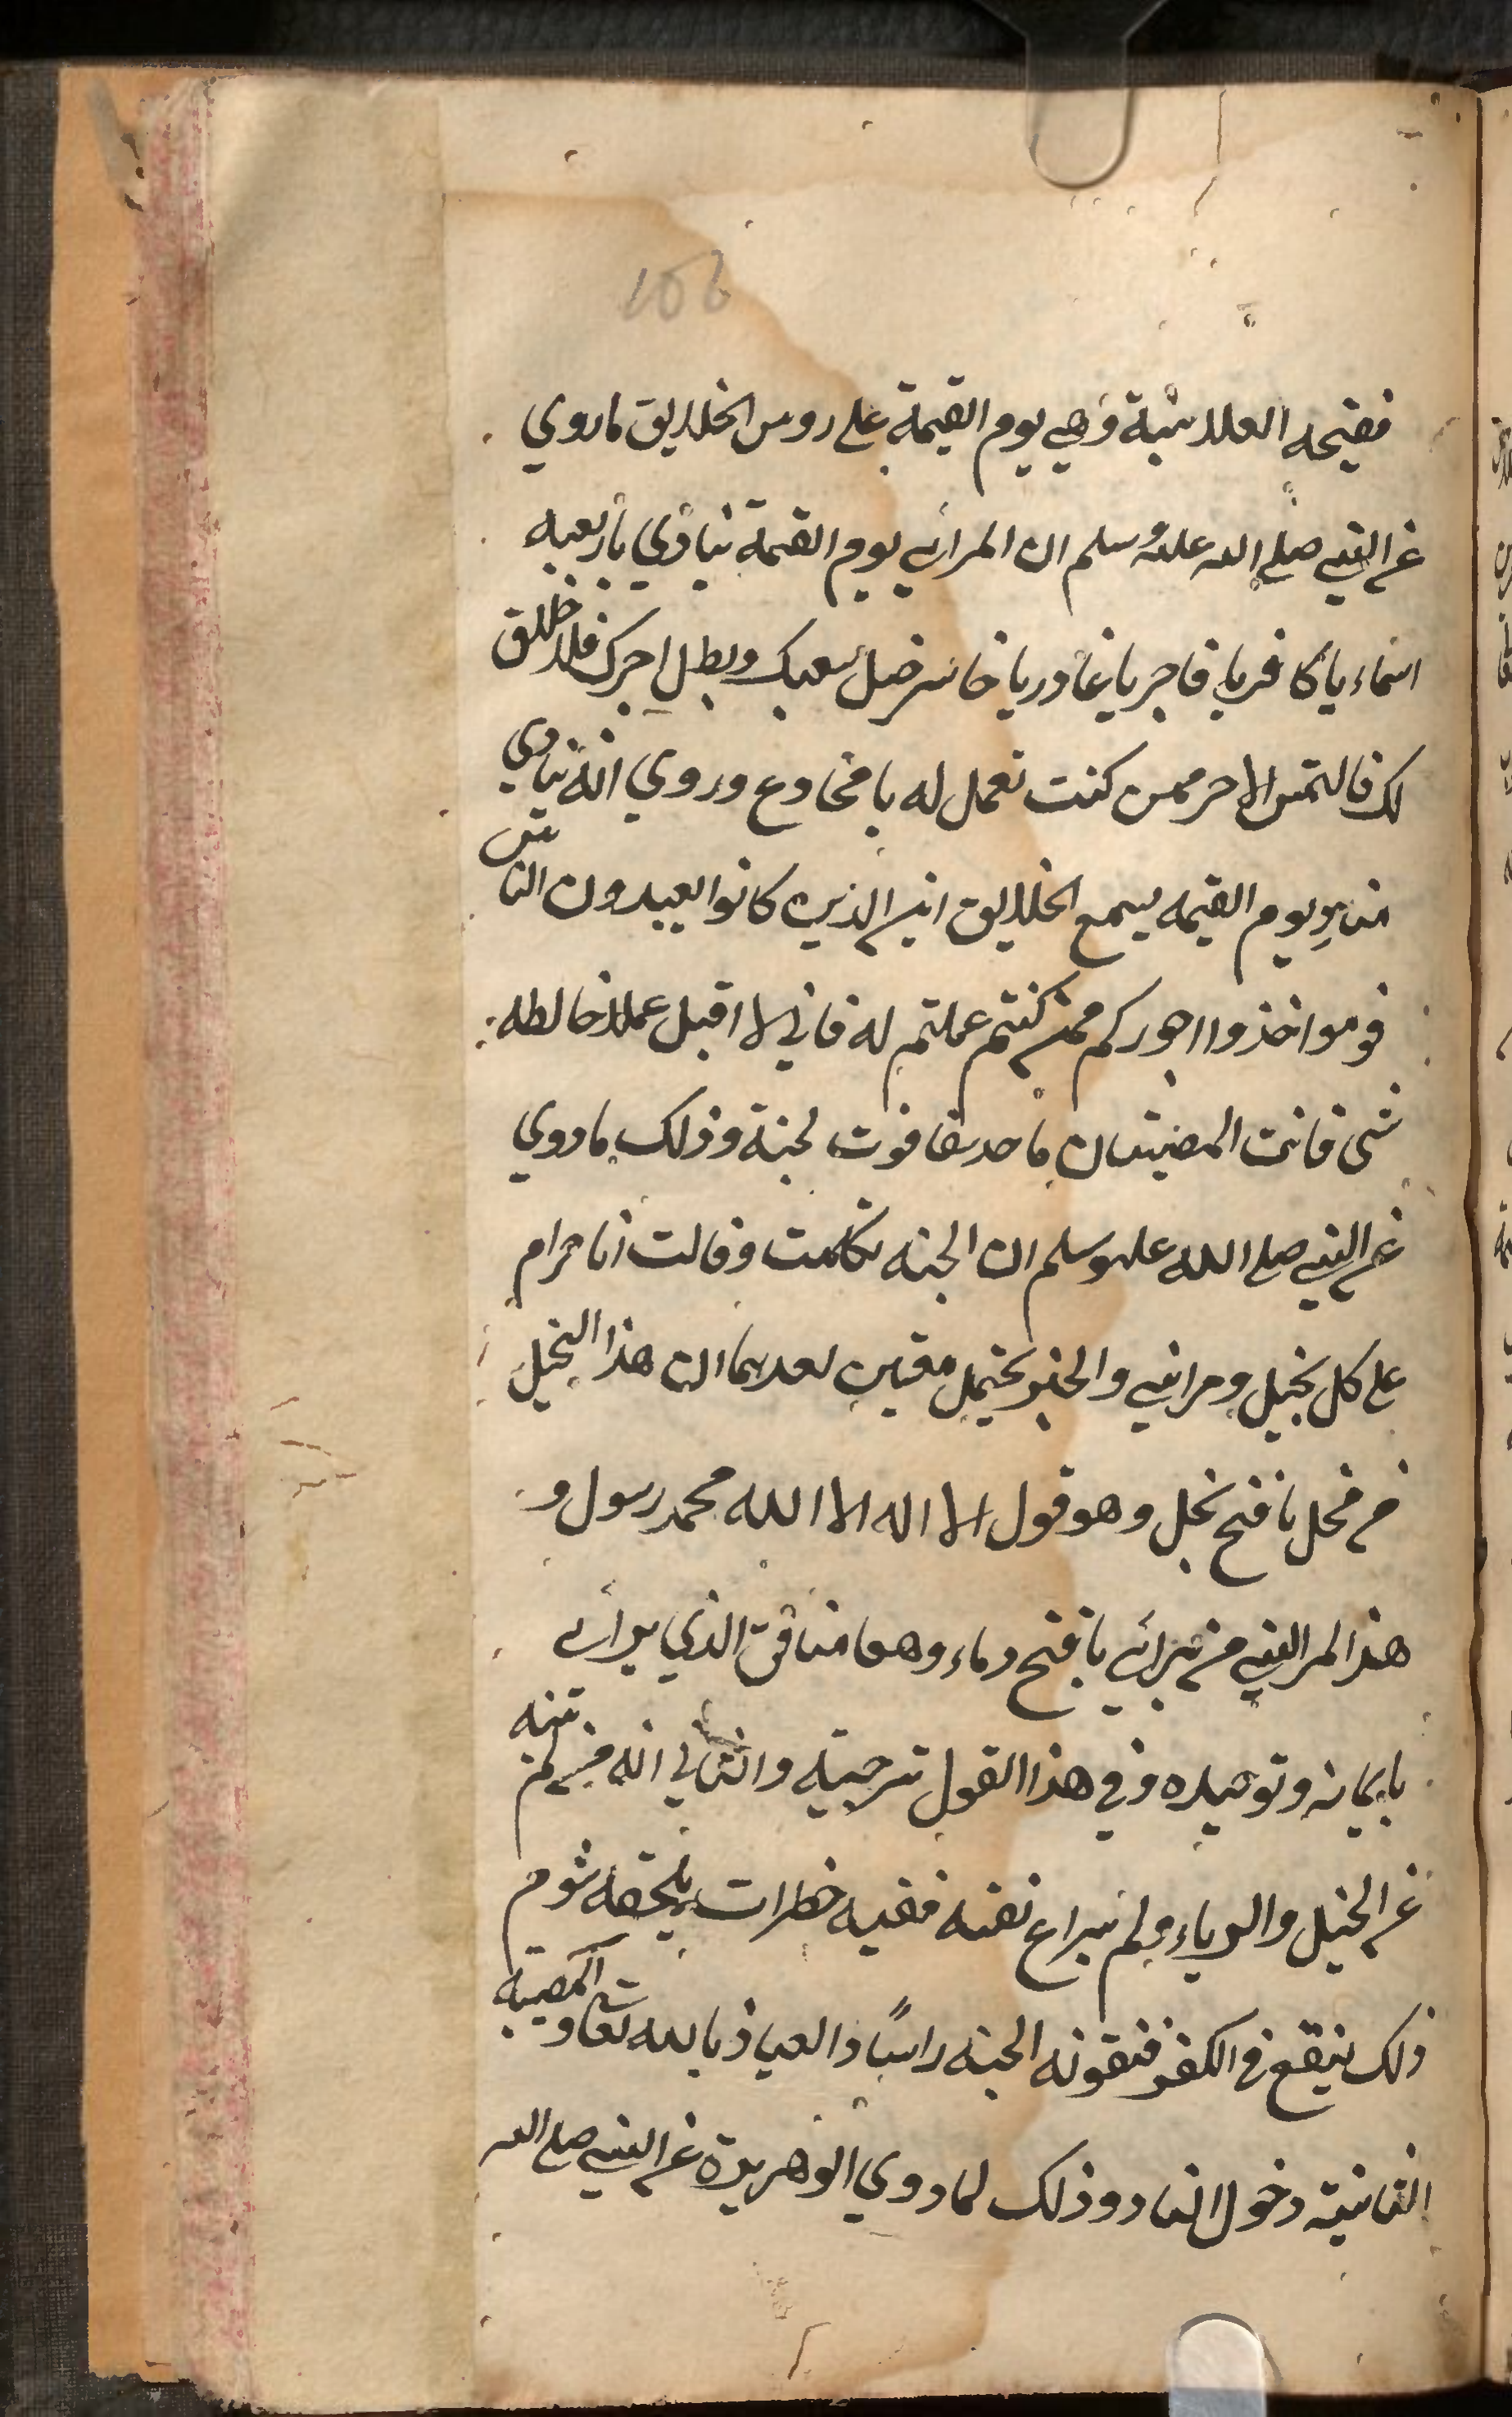 106
فضيحه العلانية وهي يوم القيمة على روس الخلايق ماروي
عن النبي صلى الله عليه وسلم ان المرائي يوم القيمة ينادي باربعه
اسماء يا كافر يا فاجر يا غادر يا خاسر ضل سعيك وبطل اجرك فلا خلاق
لك فالتمس الاجر ممن كنت تعمل له يا مخادع وروي انه ينادي
مناد يوم القيمه يسمع الخلايق اين الذين كانوا يعبدون الناس
قوموا خذوا اجوركم ممن كنتم عملتم له فاني لا اقبل عملا خالطه
شي فانت المصيبتان فاحديها فوت لجنة وذلك ماروي
عن النبي صلى الله عليه وسلم ان الجنه تكلمت وقالت انا حرام
على كل بخيل ومرائي والخبر يحتمل معنين احديهما ان هذا البخيل
من بخل باقبح بخل وهو قول لا اله الا الله محمد رسول و
هذا المرائي من يرائي باقبح رياء وهو منافق الذي يرائي
بايمانه وتوحيده وفي هذا القول ترجية والثاني انه من لم ينته
عن البخيل والرياء ولم يراع نفسه ففيه خطرات يلحقه شوم
ذلك فيقع في الكفر فتفوته الجنه راسًا والعياذ بالله تعا والمصيبه
الثانية دخول النار وذلك لما روي ابو هريرة عن النبي صلى الله